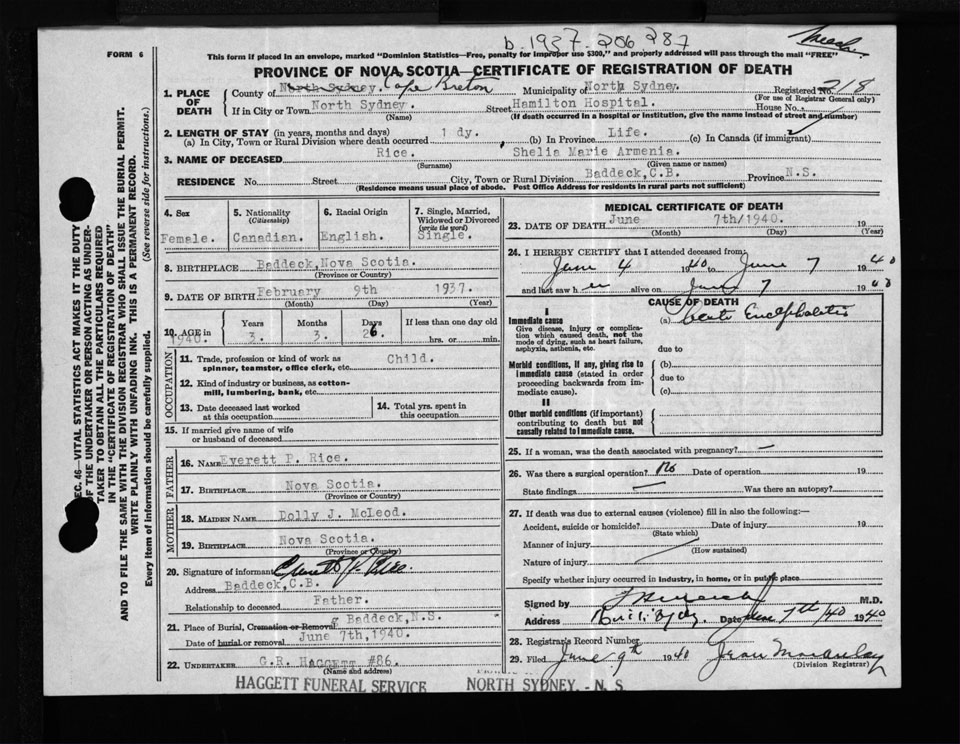 b. 1937. 206 287
FORM 6
This form if placed in an envelope, marked "Dominion Statistics—Free, penalty for improper use $300," and properly addressed will pass through the mail "FREE"
PROVINCE OF NOVA SCOTIA—CERTIFICATE OF REGISTRATION OF DEATH
1. PLACE OF DEATH
County of North Sydney. Cape Breton Municipality of North Sydney. Registered No. 218
(For use of Registrar General only)
If in City or Town North Sydney. Street Hamilton Hospital. House No.
(Name) (If death occurred in a hospital or institution, give the name instead of street and number)
2. LENGTH OF STAY (in years, months and days)
(a) In City, Town or Rural Division where death occurred 1 dy. (b) In Province Life. (c) In Canada (if immigrant)
3. NAME OF DECEASED Rice. Shelia Marie Armenia.
(Surname) (Given name or names)
RESIDENCE No. Street City, Town or Rural Division Baddeck, C.B. Province N.S.
(Residence means usual place of abode. Post Office Address for residents in rural parts not sufficient)
4. Sex Female.
5. Nationality (Citizenship) Canadian.
6. Racial Origin English.
7. Single, Married, Widowed or Divorced (write the word) Single.
8. BIRTHPLACE Baddeck, Nova Scotia.
(Province or Country)
9. DATE OF BIRTH February 9th 1937.
(Month) (Day) (Year)
10. AGE in Years Months Days If less than one day old
1940. 3. 3. 26. hrs. or min.
OCCUPATION
11. Trade, profession or kind of work as spinner, teamster, office clerk, etc. Child.
12. Kind of industry or business, as cotton-mill, lumbering, bank, etc.
13. Date deceased last worked at this occupation
14. Total yrs. spent in this occupation
15. If married give name of wife or husband of deceased
FATHER
16. NAME Everett P. Rice.
17. BIRTHPLACE Nova Scotia.
(Province or Country)
MOTHER
18. MAIDEN NAME Dolly J. McLeod.
19. BIRTHPLACE Nova Scotia.
(Province or Country)
20. Signature of informant Everett P. Rice.
Address Baddeck, C.B.
Relationship to deceased Father.
21. Place of Burial, Cremation or Removal Baddeck, N.S.
Date of burial or removal June 7th, 1940.
22. UNDERTAKER G.R. HAGGETT #86.
(Name and address)
HAGGETT FUNERAL SERVICE NORTH SYDNEY, - N. S.
MEDICAL CERTIFICATE OF DEATH
23. DATE OF DEATH June 7th/1940. 19
(Month) (Day) (Year)
24. I HEREBY CERTIFY that I attended deceased from
June 4 1940 to June 7 1940
and last saw her alive on June 7 1940
CAUSE OF DEATH
I
Immediate cause
Give disease, injury or complication which caused death, not the mode of dying, such as heart failure, asphyxia, asthenia, etc.
(a) Acute Encephalitis
due to
Morbid conditions, if any, giving rise to immediate cause (stated in order proceeding backwards from immediate cause).
(b)
due to
(c)
II
Other morbid conditions (if important) contributing to death but not causally related to immediate cause.
25. If a woman, was the death associated with pregnancy? —
26. Was there a surgical operation? No Date of operation 19
State findings — Was there an autopsy?
27. If death was due to external causes (violence) fill in also the following:—
Accident, suicide or homicide? Date of injury 19
(State which)
Manner of injury
(How sustained)
Nature of injury
Specify whether injury occurred in industry, in home, or in public place
Signed by M.D.
Address Date June 7th/40 1940
28. Registrar's Record Number
29. Filed June 9th 1940 Jean Macaulay
(Division Registrar)
SEC. 46—VITAL STATISTICS ACT MAKES IT THE DUTY
OF THE UNDERTAKER OR PERSON ACTING AS UNDER-
TAKER TO OBTAIN ALL THE PARTICULARS REQUIRED
IN THE "CERTIFICATE OF REGISTRATION OF DEATH"
AND TO FILE THE SAME WITH THE DIVISION REGISTRAR WHO SHALL ISSUE THE BURIAL PERMIT.
WRITE PLAINLY WITH UNFADING INK. THIS IS A PERMANENT RECORD.
Every item of information should be carefully supplied. (See reverse side for instructions.)